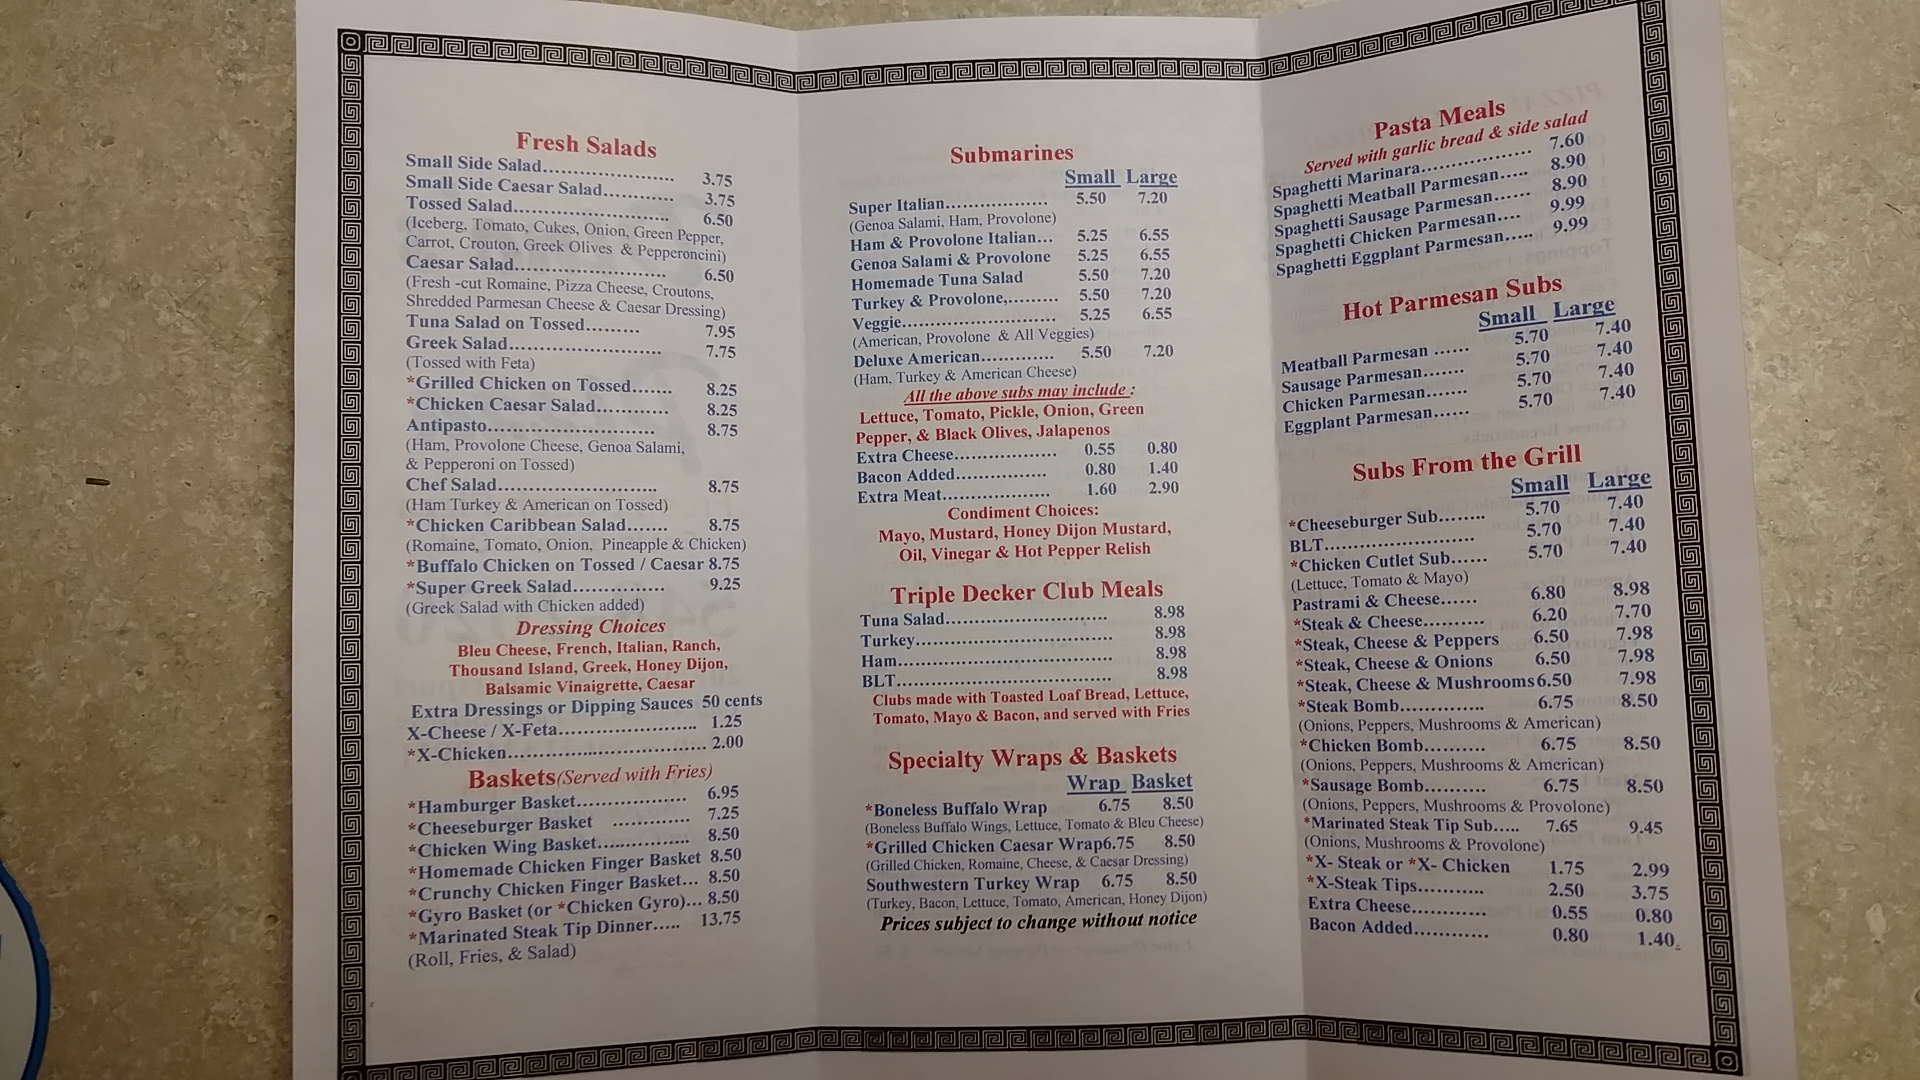 Fresh Salads
Small Side Salad........................ 3.75
Small Side Caesar Salad............ 3.75
Tossed Salad............................ 6.50
(Iceberg, Tomato, Cukes, Onion, Green Pepper,
Carrot, Crouton, Greek Olives & Pepperoncini)
Caesar Salad........................... 6.50
(Fresh -cut Romaine, Pizza Cheese, Croutons,
Shredded Parmesan Cheese & Caesar Dressing)
Tuna Salad on Tossed......... 7.95
Greek Salad........................... 7.75
(Tossed with Feta)
*Grilled Chicken on Tossed....... 8.25
*Chicken Caesar Salad............ 8.25
Antipasto.............................. 8.75
(Ham, Provolone Cheese, Genoa Salami,
& Pepperoni on Tossed)
Chef Salad............................ 8.75
(Ham Turkey & American on Tossed)
*Chicken Caribbean Salad....... 8.75
(Romaine, Tomato, Onion, Pineapple & Chicken)
*Buffalo Chicken on Tossed / Caesar 8.75
*Super Greek Salad................ 9.25
(Greek Salad with Chicken added)
Dressing Choices
Bleu Cheese, French, Italian, Ranch,
Thousand Island, Greek, Honey Dijon,
Balsamic Vinaigrette, Caesar
Extra Dressings or Dipping Sauces 50 cents
X-Cheese / X-Feta......................... 1.25
*X-Chicken.................................... 2.00
Baskets(Served with Fries)
*Hamburger Basket.................... 6.95
*Cheeseburger Basket .............. 7.25
*Chicken Wing Basket................. 8.50
*Homemade Chicken Finger Basket 8.50
*Crunchy Chicken Finger Basket... 8.50
*Gyro Basket (or *Chicken Gyro)... 8.50
*Marinated Steak Tip Dinner..... 13.75
(Roll, Fries, & Salad)
Submarines
Small Large
Super Italian.................. 5.50 7.20
(Genoa Salami, Ham, Provolone)
Ham & Provolone Italian... 5.25 6.55
Genoa Salami & Provolone 5.25 6.55
Homemade Tuna Salad 5.50 7.20
Turkey & Provolone,......... 5.50 7.20
Veggie........................... 5.25 6.55
(American, Provolone & All Veggies)
Deluxe American............. 5.50 7.20
(Ham, Turkey & American Cheese)
All the above subs may include :
Lettuce, Tomato, Pickle, Onion, Green
Pepper, & Black Olives, Jalapenos
Extra Cheese.................. 0.55 0.80
Bacon Added................ 0.80 1.40
Extra Meat................... 1.60 2.90
Condiment Choices:
Mayo, Mustard, Honey Dijon Mustard,
Oil, Vinegar & Hot Pepper Relish
Triple Decker Club Meals
Tuna Salad............................. 8.98
Turkey................................... 8.98
Ham...................................... 8.98
BLT...................................... 8.98
Clubs made with Toasted Loaf Bread, Lettuce,
Tomato, Mayo & Bacon, and served with Fries
Specialty Wraps & Baskets
Wrap Basket
*Boneless Buffalo Wrap 6.75 8.50
(Boneless Buffalo Wings, Lettuce, Tomato & Bleu Cheese)
*Grilled Chicken Caesar Wrap6.75 8.50
(Grilled Chicken, Romaine, Cheese, & Caesar Dressing)
Southwestern Turkey Wrap 6.75 8.50
(Turkey, Bacon, Lettuce, Tomato, American, Honey Dijon)
Prices subject to change without notice
Pasta Meals
Served with garlic bread & side salad
Spaghetti Marinara.................... 7.60
Spaghetti Meatball Parmesan..... 8.90
Spaghetti Sausage Parmesan...... 8.90
Spaghetti Chicken Parmesan.... 9.99
Spaghetti Eggplant Parmesan..... 9.99
Hot Parmesan Subs
Small Large
Meatball Parmesan ...... 5.70 7.40
Sausage Parmesan....... 5.70 7.40
Chicken Parmesan....... 5.70 7.40
Eggplant Parmesan...... 5.70 7.40
Subs From the Grill
Small Large
*Cheeseburger Sub........ 5.70 7.40
BLT.......................... 5.70 7.40
*Chicken Cutlet Sub...... 5.70 7.40
(Lettuce, Tomato & Mayo)
Pastrami & Cheese...... 6.80 8.98
*Steak & Cheese.......... 6.20 7.70
*Steak, Cheese & Peppers 6.50 7.98
*Steak, Cheese & Onions 6.50 7.98
*Steak, Cheese & Mushrooms 6.50 7.98
*Steak Bomb.............. 6.75 8.50
(Onions, Peppers, Mushrooms & American)
*Chicken Bomb.......... 6.75 8.50
(Onions, Peppers, Mushrooms & American)
*Sausage Bomb.......... 6.75 8.50
(Onions, Peppers, Mushrooms & Provolone)
*Marinated Steak Tip Sub..... 7.65 9.45
(Onions, Mushrooms & Provolone)
*X- Steak or *X- Chicken 1.75 2.99
*X-Steak Tips........... 2.50 3.75
Extra Cheese............. 0.55 0.80
Bacon Added............. 0.80 1.40